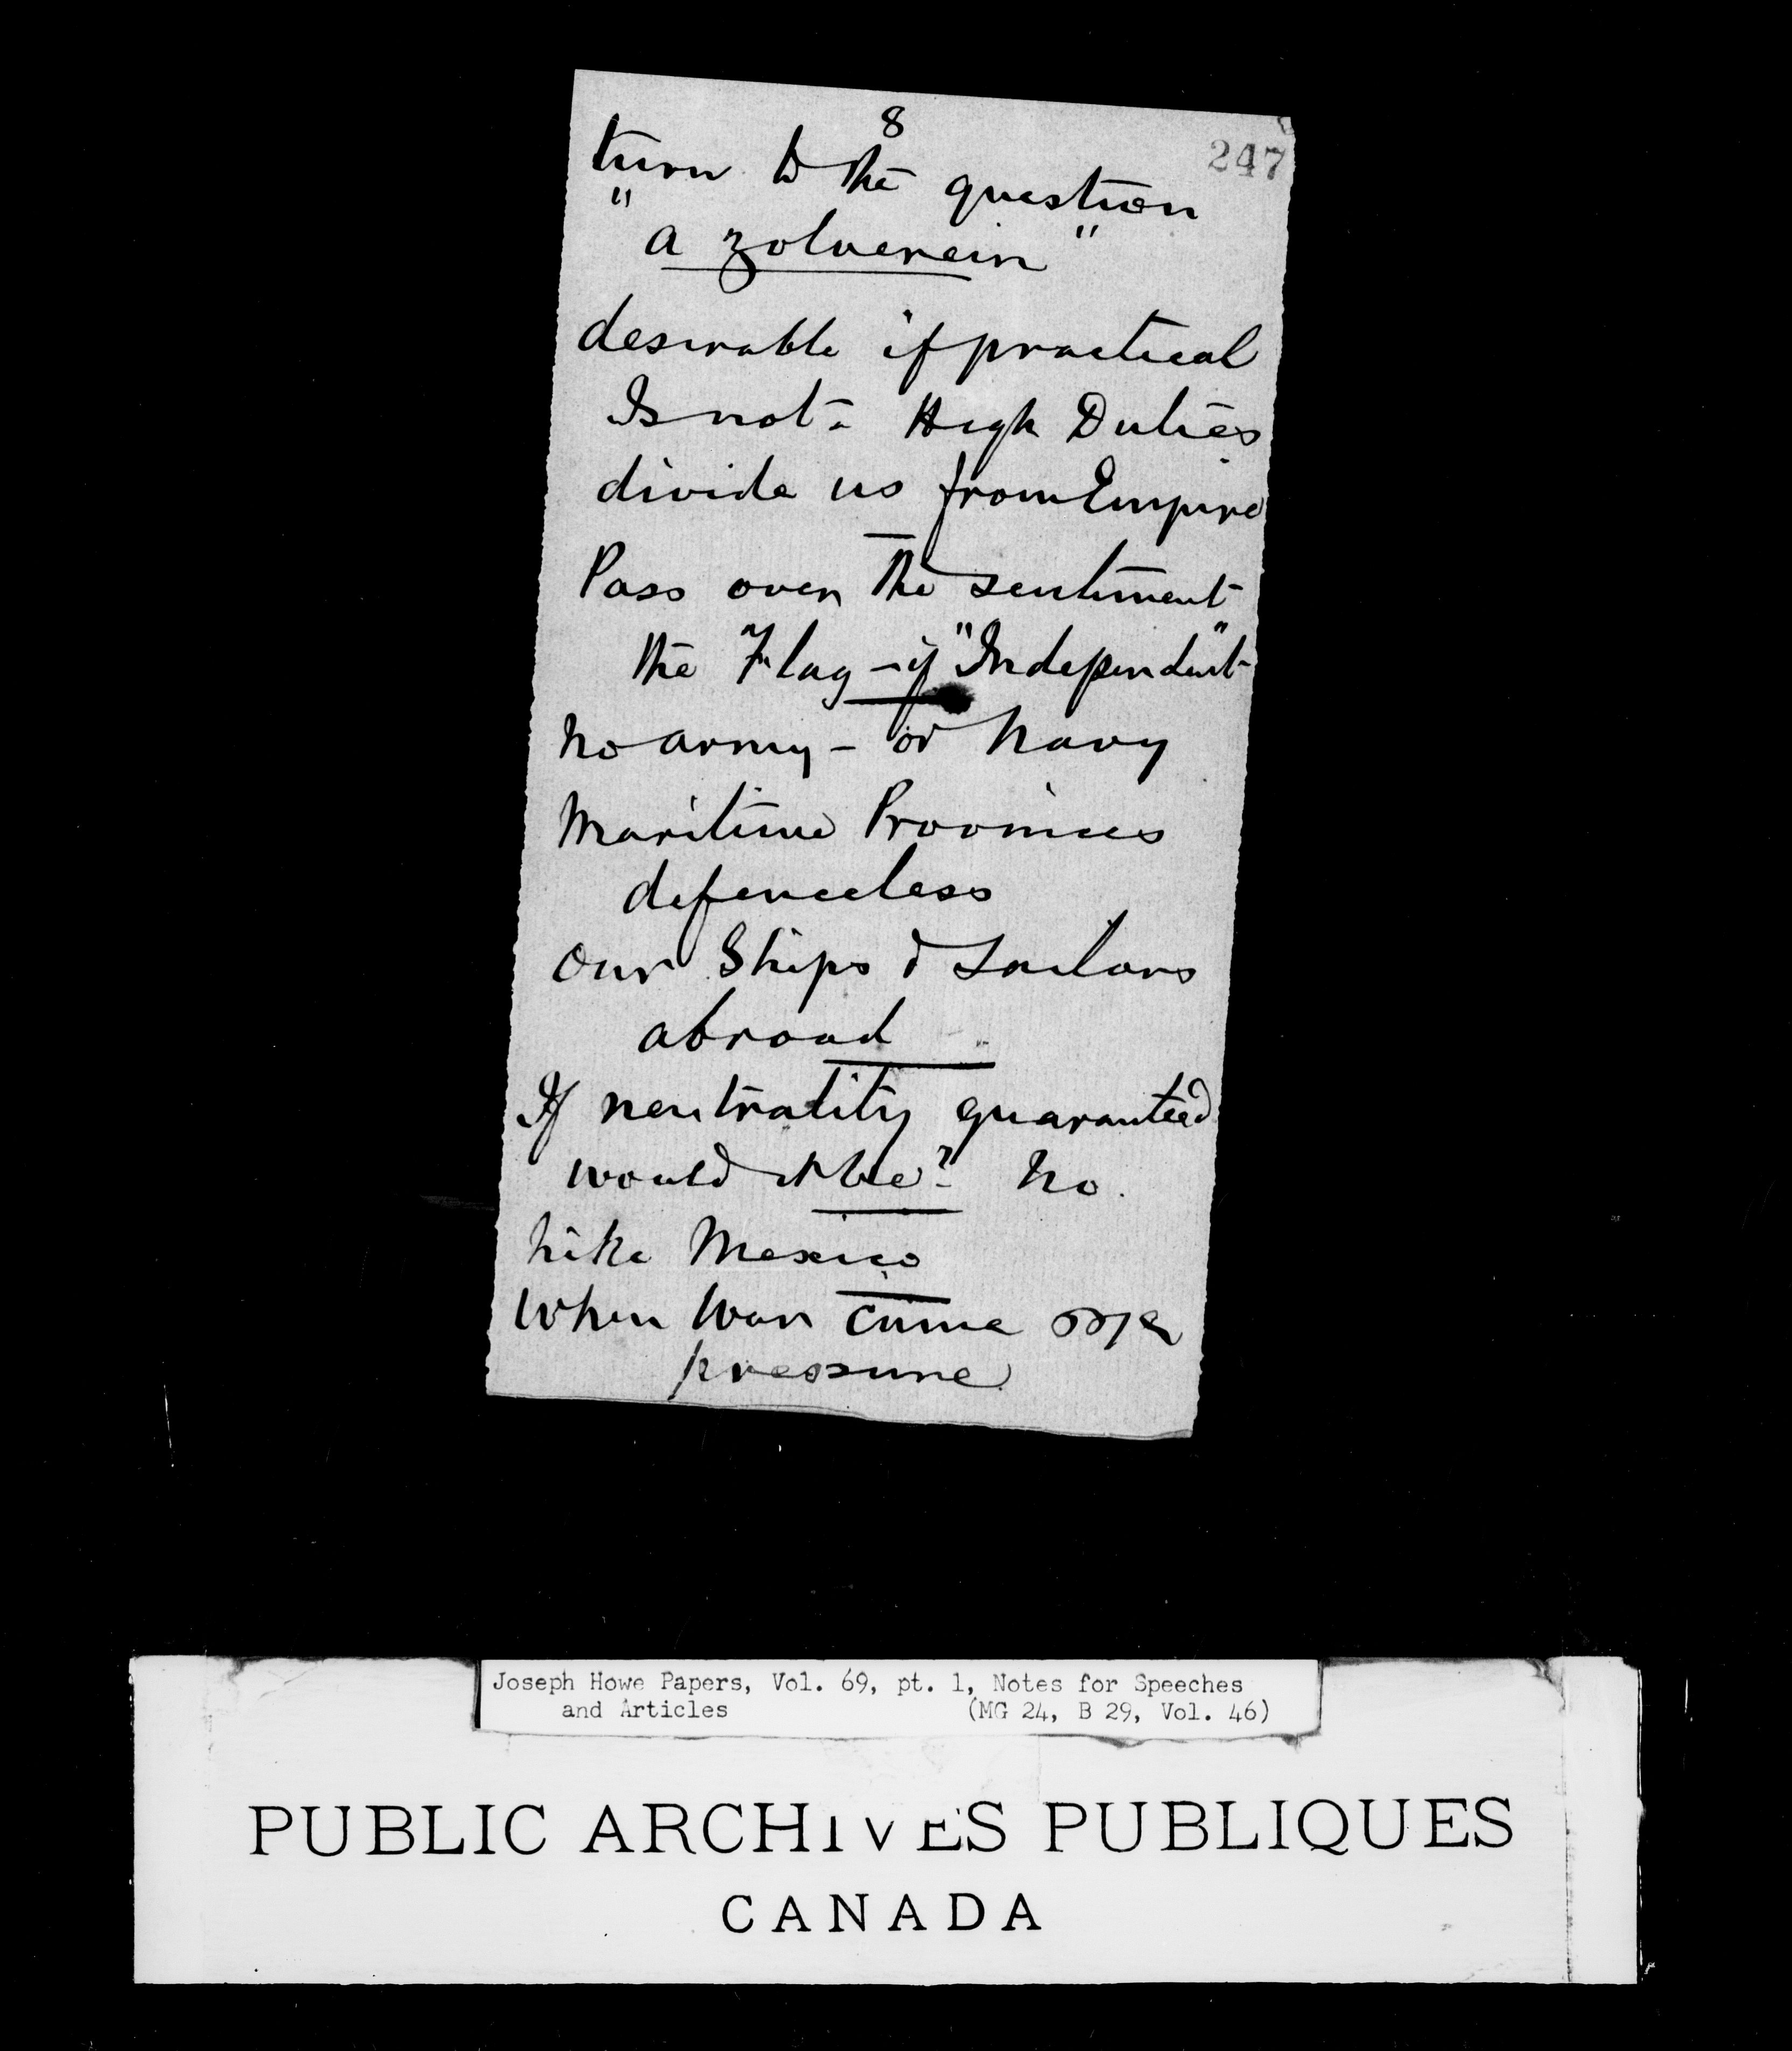 8
247
turn to the question
"a zolverein"
desirable if practical
Is not - High Duties
divide us from Empire
Pass over the sentiment
the Flag - if "Independent"
no army - or Navy
Maritime Provinces
defenceless
Our Ships & Sailors
abroad
If neutrality guaranteed
would it be? No.
like Mexico
When War came
pressure
Joseph Howe Papers, Vol. 69, pt. 1, Notes for Speeches
and Articles (MG 24, B 29, Vol. 46)
PUBLIC ARCHIVES PUBLIQUES
CANADA